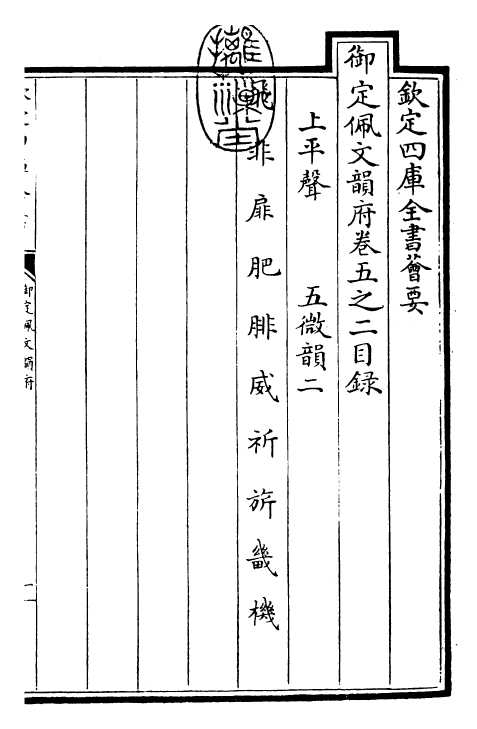 欽定四庫全書薈要
御定佩文韻府卷五之二目録
上平聲　五微韻二
飛非扉肥腓威祈旂畿機
御定佩文韻府